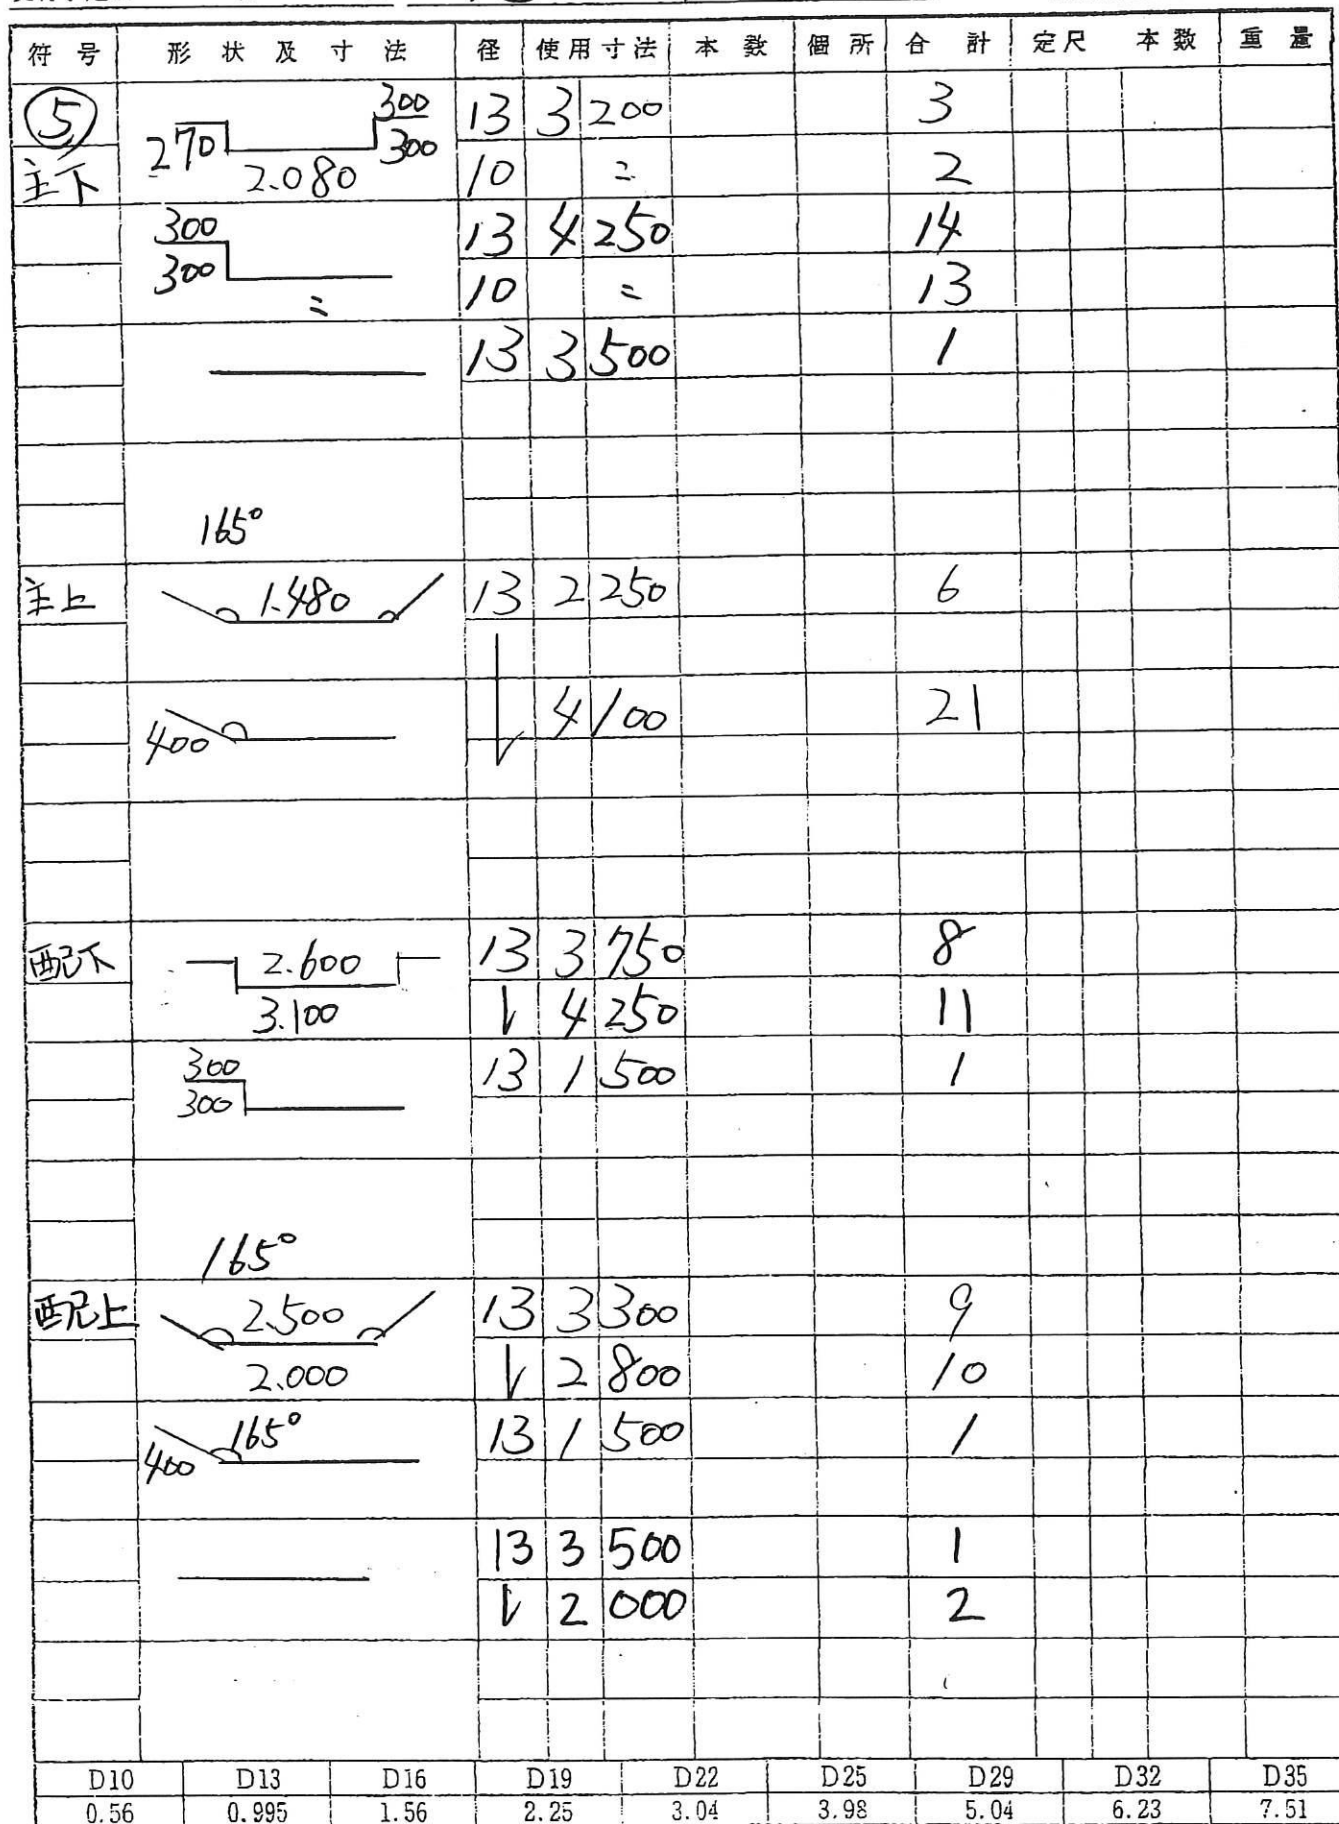 符号 形状及寸法 径 使用寸法 本数 個所 合計 定尺 本数 重量
⑤ 270 2.080 300 300 13 3 200 3
主下 10 〃 2
300 300 〃 13 4 250 14
10 〃 13
13 3 500 1
165°
主上 1.480 13 2 250 6
400 ↓ 4 100 21
配下 2.600 13 3 750 8
3.100 ↓ 4 250 11
300 300 13 1 500 1
165°
配上 2.500 13 3 300 9
2.000 ↓ 2 800 10
400 165° 13 1 500 1
13 3 500 1
↓ 2 000 2
D10 D13 D16 D19 D22 D25 D29 D32 D35
0.56 0.995 1.56 2.25 3.04 3.98 5.04 6.23 7.51